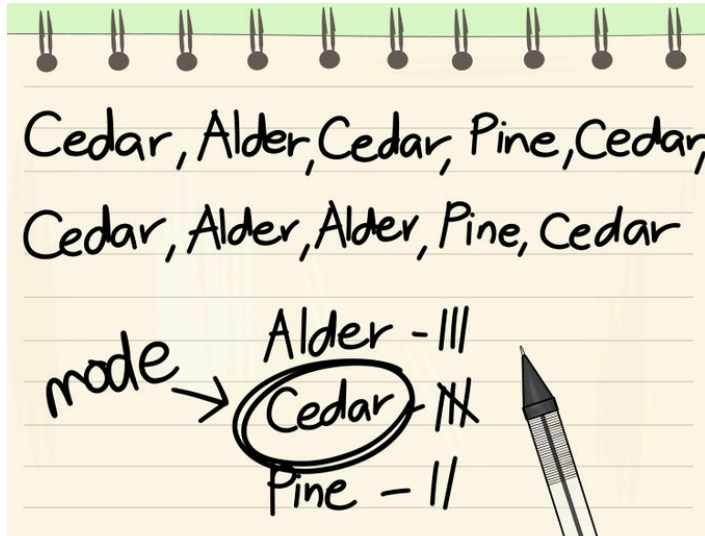 Cedar, Alder, Cedar, Pine, Cedar,
Cedar, Alder, Alder, Pine, Cedar
Alder - |||
mode → Cedar - 卌
Pine - ||